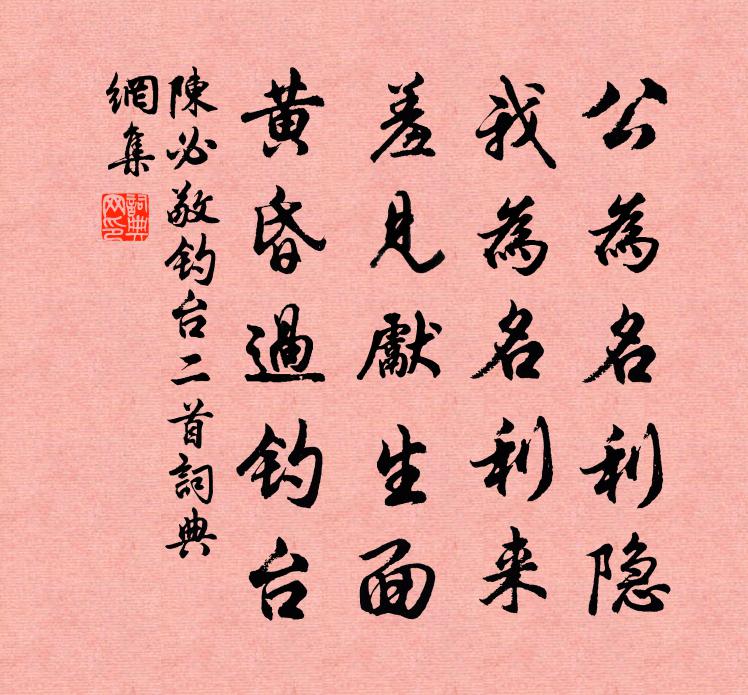 公為名利隐
我為名利来
羞見獻生面
黄昏過钓台
陳必敬钓台二首詞典
網集
詞典网印